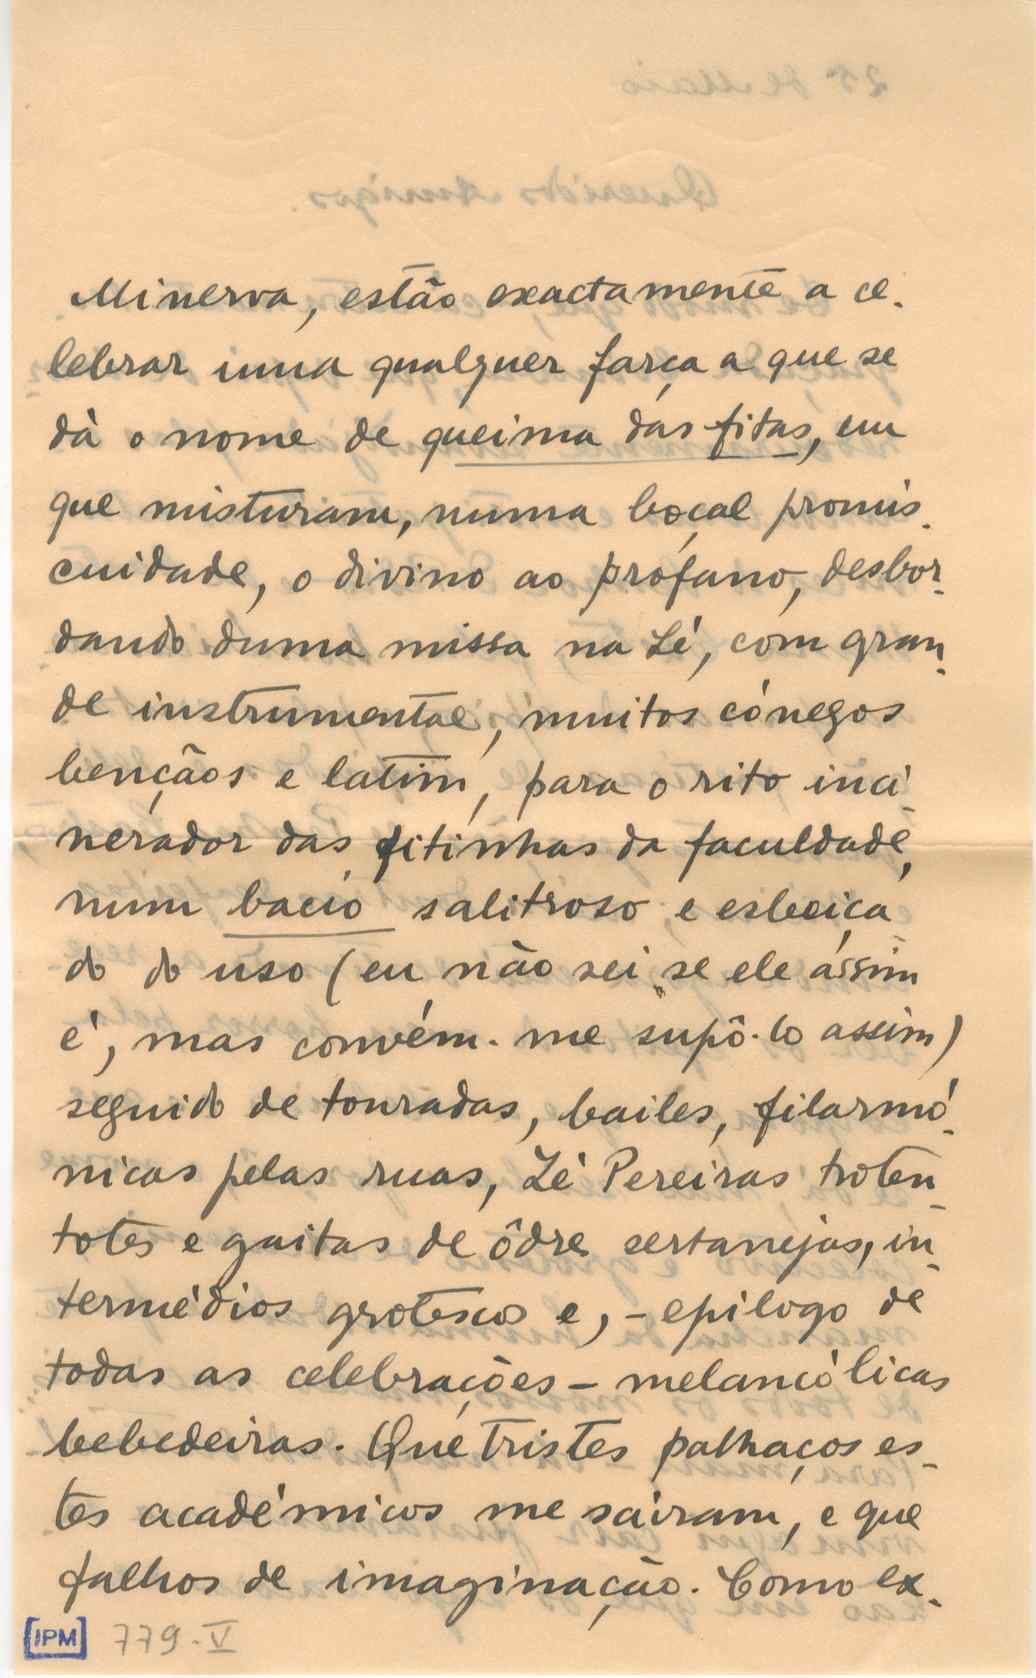 Minerva, estão exactamente a ce-
lebrar uma qualquer farça a que se
dá o nome de queima das fitas, em
que misturam, numa boçal promis-
cuidade, o divino ao prófano, desbor-
dando duma missa na Sé, com gran-
de instrumental, muitos cónegos
bençãos e latim, para o rito inci-
nerador das fitinhas da faculdade,
num bacio salitroso e esbeiça-
do do uso (eu não sei se ele assim
é, mas convém-me supô-lo assim)
seguido de touradas, bailes, filarmó-
nicas pelas ruas, Zé Pereiras hoten-
totes e gaitas de ôdre sertanejas, in-
termédios grotescos e, - epilogo de
todas as celebrações - melancólicas
bebedeiras. Que tristes palhaços es-
tes académicos me saíram, e que
falhos de imaginação. Como ex-
[IPM] 779-V